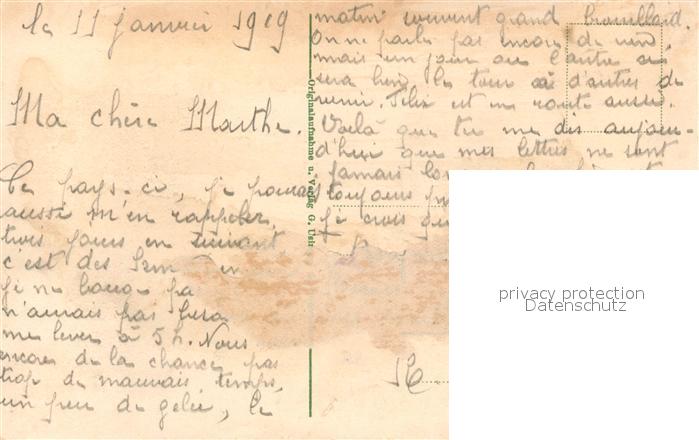 le 11 janvier 1919
Ma chère Marthe.
Ce pays-ci, je pourrais
aussi m'en rappeler,
trois jours en suivant
c'est des
je ne bouge pa
n'aurais pas
me lever à 5 h. Nous
encore de la chance, pas
trop de mauvais temps,
un peu de gelée, le
Originalaufnahme u. Verlag G.
matin souvent grand brouillard.
On ne parle pas encore de rien,
mais un jour ou l'autre ce
sera bien le tour à d'autres de
venir. Félix est en route aussi.
Voilà que tu me dis aujour-
d'hui que mes lettres ne sont
jamais
toujours
je crois que
privacy protection
Datenschutz